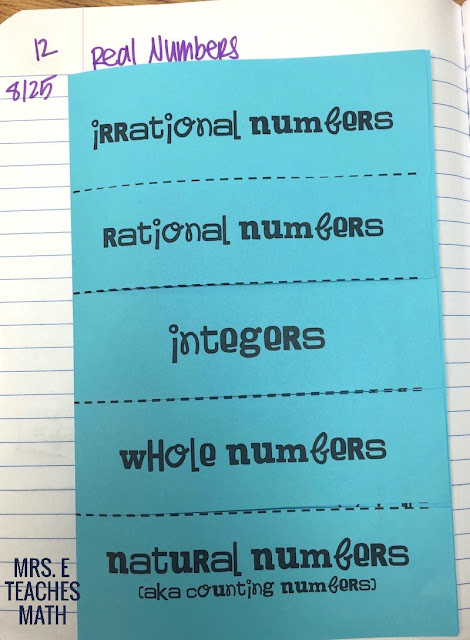 12 Real Numbers
8/25
irrational numbers
Rational numbers
integers
whole numbers
natural numbers
(aka counting numbers)
MRS. E
TEACHES
MATH